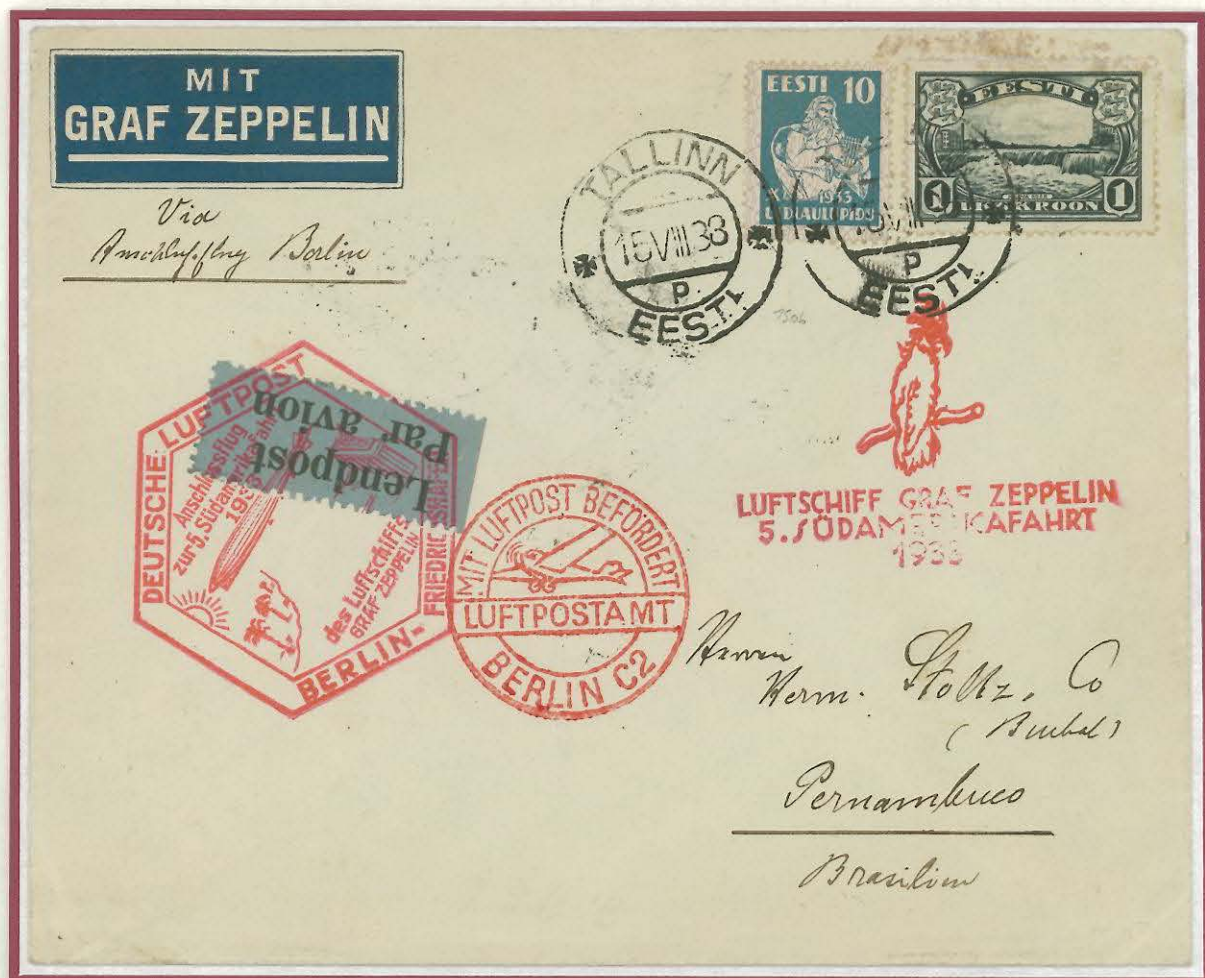 MIT
GRAF ZEPPELIN
Via
Anschlussflug Berlin
EESTI 10
1933
EESTI
1 1
KROON
TALLINN
15 VIII 33
P.
EESTI.
VIII
P
EESTI.
1506
DEUTSCHE LUFTPOST
Anschlussflug
zur 5. Südamerikafahrt
1933
des Luftschiffs
GRAF ZEPPELIN
BERLIN-
Lendpost
Par avion
MIT LUFTPOST BEFÖRDERT
LUFTPOSTAMT
BERLIN C2
LUFTSCHIFF GRAF ZEPPELIN
5. SÜDAMERIKAFAHRT
1933
Herren
Herm. Stoltz, Co
Pernambuco
Brasilien